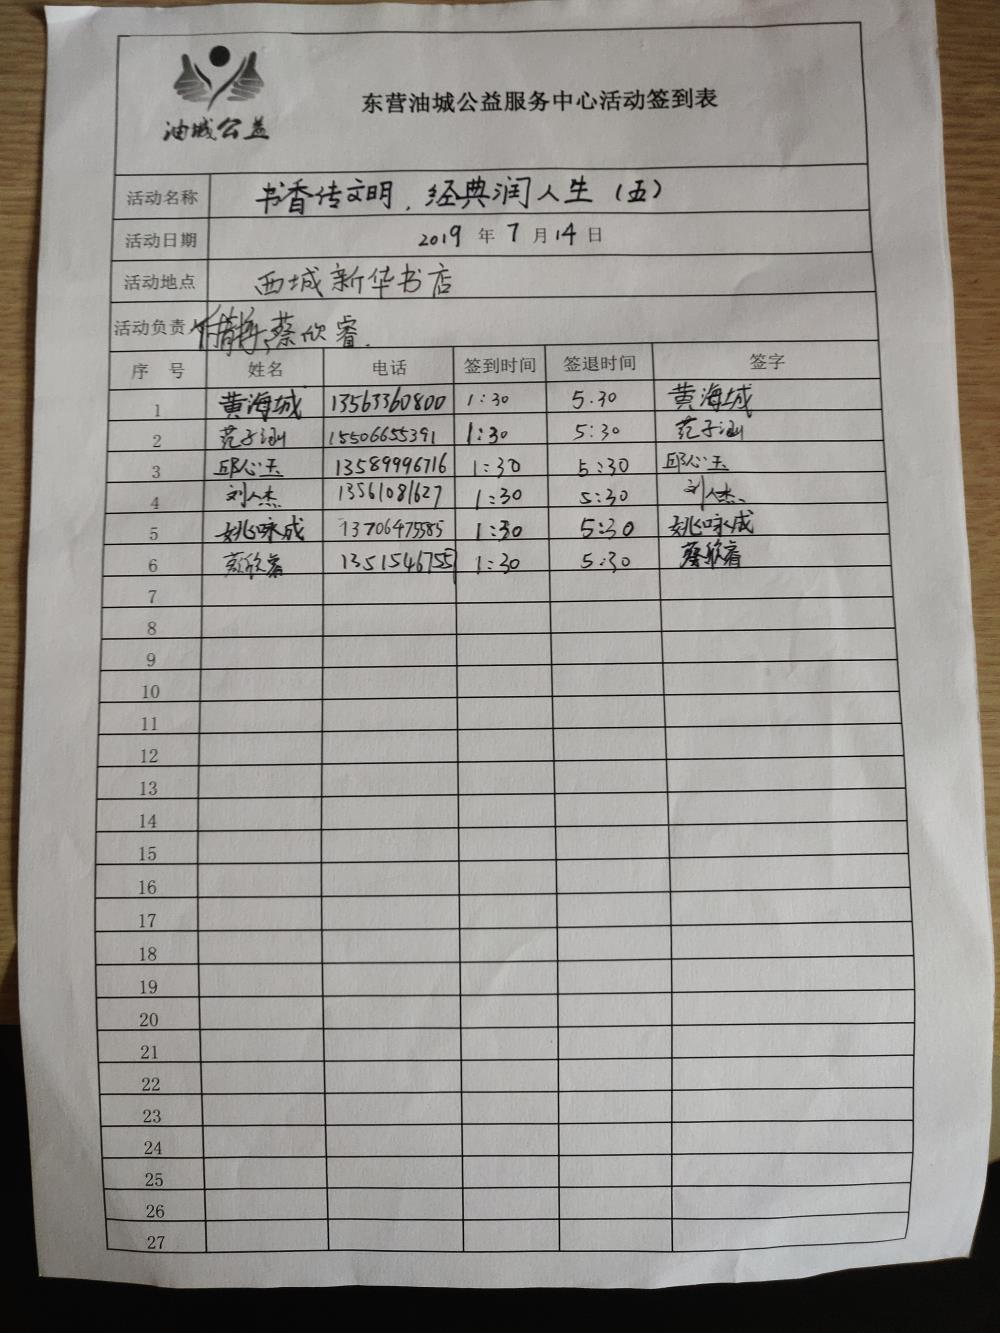 油城公益
东营油城公益服务中心活动签到表
活动名称 书香传文明，经典润人生（五）
活动日期 2019 年 7 月 14 日
活动地点 西城新华书店
活动负责人 蔡欣睿
序 号 姓名 电话 签到时间 签退时间 签字
1 黄海城 13563360800 1:30 5:30 黄海城
2 范子涵 15506655391 1:30 5:30 范子涵
3 邱心玉 13589996716 1:30 5:30 邱心玉
4 刘人杰 13561081627 1:30 5:30 刘人杰
5 姚咏成 13706475585 1:30 5:30 姚咏成
6 蔡欣睿 1:30 5:30 蔡欣睿
7
8
9
10
11
12
13
14
15
16
17
18
19
20
21
22
23
24
25
26
27